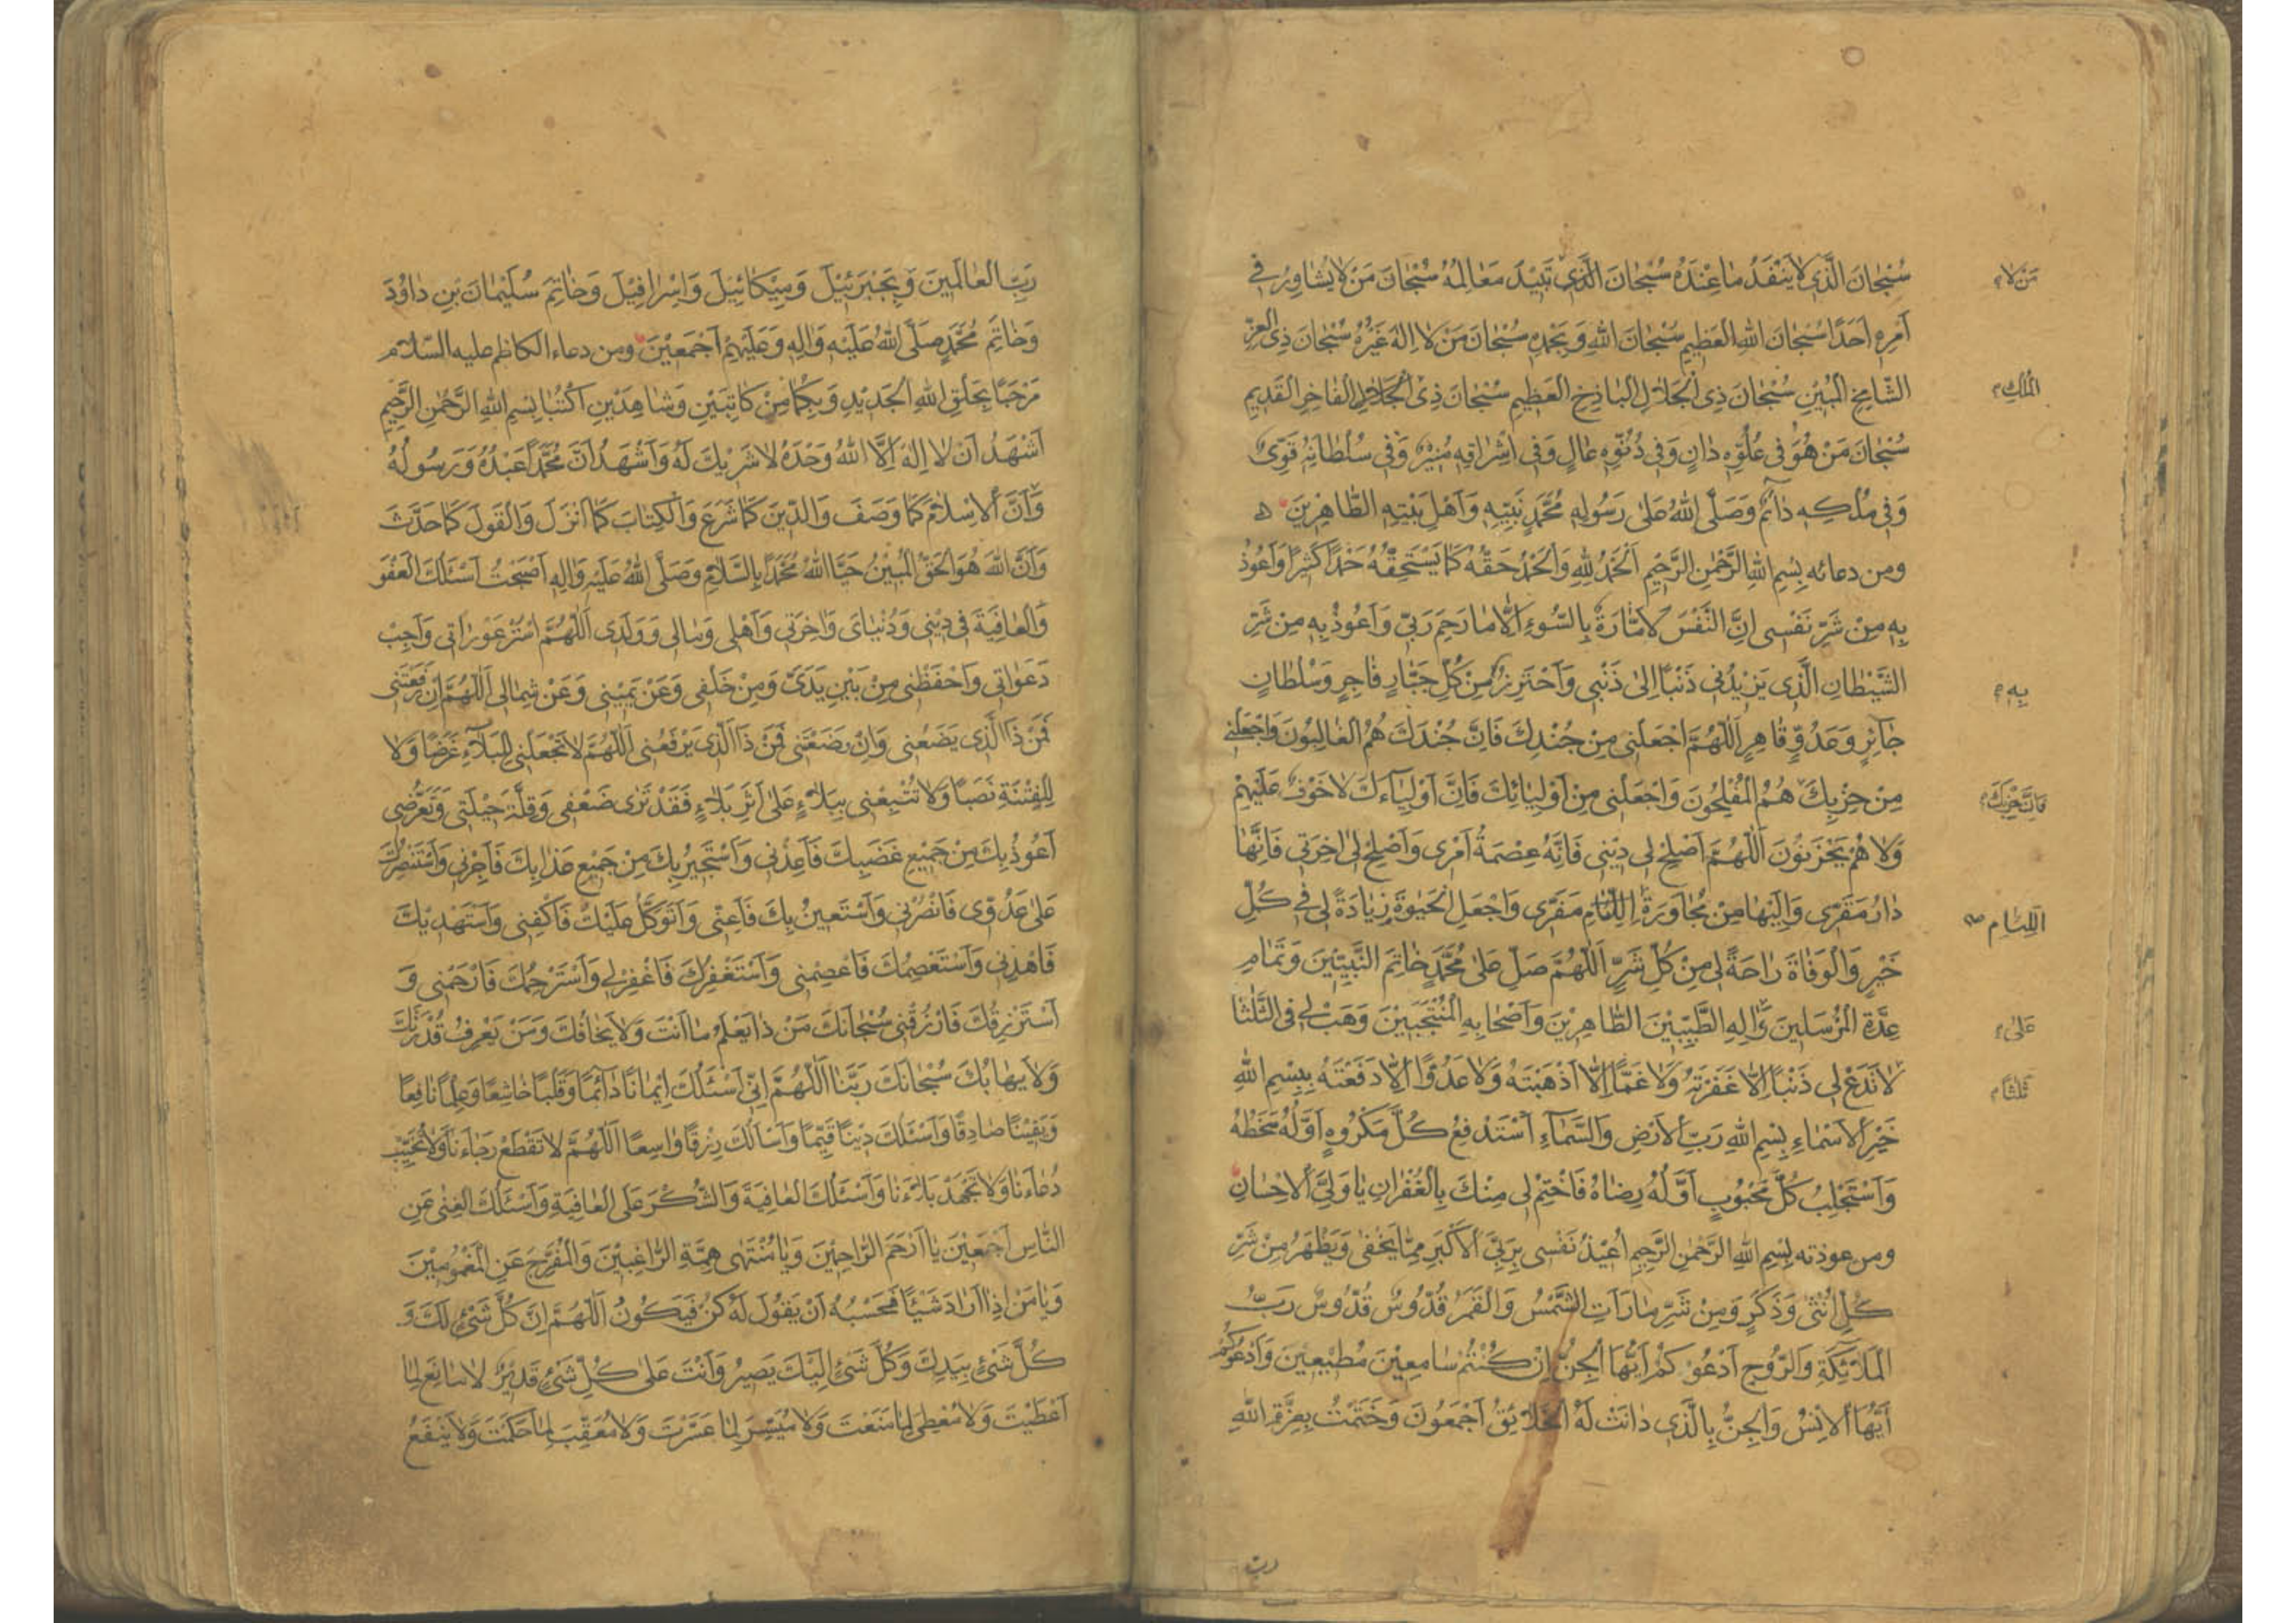 سُبْحَانَ الَّذِي لَا يَنْفَدُ مَا عِنْدَهُ سُبْحَانَ الَّذِي تَبِيدُ مَعَالِمُهُ سُبْحَانَ مَنْ لَا يُشَاوِرُ فِي
مَنْ لَا
أَمْرِهِ أَحَدًا سُبْحَانَ اللهِ الْعَظِيمِ سُبْحَانَ اللهِ وَبِحَمْدِهِ سُبْحَانَ مَنْ لَا اِلهَ غَيْرُهُ سُبْحَانَ ذِي الْعِزِّ
الشَّامِخِ الْمُبِينِ سُبْحَانَ ذِي الْجَلَالِ الْبَاذِخِ الْعَظِيمِ سُبْحَانَ ذِي الْجَلَالِ الْفَاخِرِ الْقَدِيمِ
الْمُلْكِ
سُبْحَانَ مَنْ هُوَ فِي عُلُوِّهِ دَانٍ وَفِي دُنُوِّهِ عَالٍ وَفِي اِشْرَاقِهِ مُنِيرٌ وَفِي سُلْطَانِهِ قَوِيٌّ
وَفِي مُلْكِهِ دَائِمٌ وَصَلَّى اللهُ عَلَى رَسُولِهِ مُحَمَّدٍ نَبِيِّهِ وَأَهْلِ بَيْتِهِ الطَّاهِرِينَ
ومن دعائه بِسْمِ اللهِ الرَّحْمنِ الرَّحِيمِ اَلْحَمْدُ لِلّهِ وَالْحَمْدُ حَقُّهُ كَمَا يَسْتَحِقُّهُ حَمْدًا كَثِيرًا وَأَعُوذُ
بِهِ مِنْ شَرِّ نَفْسِي اِنَّ النَّفْسَ لَأَمَّارَةٌ بِالسُّوءِ اِلَّا مَا رَحِمَ رَبِّي وَأَعُوذُ بِهِ مِنْ شَرِّ
الشَّيْطَانِ الَّذِي يَزِيدُنِي ذَنْبًا اِلَى ذَنْبِي وَأَحْتَرِزُ مِنْ كُلِّ جَبَّارٍ فَاجِرٍ وَسُلْطَانٍ
بِهِ
جَائِرٍ وَعَدُوٍّ قَاهِرٍ اَللّهُمَّ اجْعَلْنِي مِنْ جُنْدِكَ فَاِنَّ جُنْدَكَ هُمُ الْغَالِبُونَ وَاجْعَلْنِي
مِنْ حِزْبِكَ هُمُ الْمُفْلِحُونَ وَاجْعَلْنِي مِنْ أَوْلِيَائِكَ فَاِنَّ أَوْلِيَاءَكَ لَا خَوْفٌ عَلَيْهِمْ
فَاِنَّ حِزْبَكَ
وَلَا هُمْ يَحْزَنُونَ اَللّهُمَّ أَصْلِحْ لِي دِينِي فَاِنَّهُ عِصْمَةُ أَمْرِي وَأَصْلِحْ لِي اخِرَتِي فَاِنَّهَا
دَارُ مَقَرِّي وَاِلَيْهَا مِنْ مُجَاوَرَةِ اللِّئَامِ مَفَرِّي وَاجْعَلِ الْحَيوةَ زِيَادَةً لِي فِي كُلِّ
اللِّئَامِ
خَيْرٍ وَالْوَفَاةَ رَاحَةً لِي مِنْ كُلِّ شَرٍّ اَللّهُمَّ صَلِّ عَلَى مُحَمَّدٍ خَاتِمِ النَّبِيِّينَ وَتَمَامِ
عِدَّةِ الْمُرْسَلِينَ وَالِهِ الطَّيِّبِينَ الطَّاهِرِينَ وَأَصْحَابِهِ الْمُنْتَجَبِينَ وَهَبْ لِي فِي الثَّلَثَا
عَلَى
لَا تَدَعْ لِي ذَنْبًا اِلَّا غَفَرْتَهُ وَلَا غَمًّا اِلَّا أَذْهَبْتَهُ وَلَا عَدُوًّا اِلَّا دَفَعْتَهُ بِبِسْمِ اللهِ
ثَلثًا
خَيْرِ الْأَسْمَاءِ بِسْمِ اللهِ رَبِّ الْأَرْضِ وَالسَّمَاءِ أَسْتَدْفِعُ كُلَّ مَكْرُوهٍ أَوَّلُهُ سَخَطُهُ
وَأَسْتَجْلِبُ كُلَّ مَحْبُوبٍ أَوَّلُهُ رِضَاهُ فَاخْتِمْ لِي مِنْكَ بِالْغُفْرَانِ يَا وَلِيَّ الْأِحْسَانِ
ومن عوذته بِسْمِ اللهِ الرَّحْمنِ الرَّحِيمِ أُعِيذُ نَفْسِي بِرَبِّيَ الْأَكْبَرِ مِمَّا يَخْفَى وَيَظْهَرُ مِنْ شَرِّ
كُلِّ أُنْثَى وَذَكَرٍ وَمِنْ شَرِّ مَا رَأَتِ الشَّمْسُ وَالْقَمَرُ قُدُّوسٌ قُدُّوسٌ رَبُّ
الْمَلَائِكَةِ وَالرُّوحِ أَدْعُوكُمْ أَيُّهَا الْجِنُّ اِنْ كُنْتُمْ سَامِعِينَ مُطِيعِينَ وَأَدْعُوكُمْ
أَيُّهَا الْأِنْسُ وَالْجِنُّ بِالَّذِي دَانَتْ لَهُ الْخَلَائِقُ أَجْمَعُونَ وَخَتَمْتُ بِعِزَّةِ اللهِ
رب
رَبِّ الْعَالَمِينَ وَبِجَبْرَئِيلَ وَمِيكَائِيلَ وَاِسْرَافِيلَ وَخَاتَمِ سُلَيْمَانَ بْنِ دَاوُدَ
وَخَاتَمِ مُحَمَّدٍ صَلَّى اللهُ عَلَيْهِ وَالِهِ وَعَلَيْهِمْ أَجْمَعِينَ ومن دعاء الكاظم عليه السّلام
مَرْحَبًا بِخَلْقِ اللهِ الْجَدِيدِ وَبِكُمَا مِنْ كَاتِبَيْنِ وَشَاهِدَيْنِ اُكْتُبَا بِسْمِ اللهِ الرَّحْمنِ الرَّحِيمِ
أَشْهَدُ أَنْ لَا اِلهَ اِلَّا اللهُ وَحْدَهُ لَا شَرِيكَ لَهُ وَأَشْهَدُ أَنَّ مُحَمَّدًا عَبْدُهُ وَرَسُولُهُ
وَأَنَّ الْأِسْلَامَ كَمَا وَصَفَ وَالدِّينَ كَمَا شَرَعَ وَالْكِتَابَ كَمَا أَنْزَلَ وَالْقَوْلَ كَمَا حَدَّثَ
وَأَنَّ اللهَ هُوَ الْحَقُّ الْمُبِينُ حَيَّا اللهُ مُحَمَّدًا بِالسَّلَامِ وَصَلَّى اللهُ عَلَيْهِ وَالِهِ أَصْبَحْتُ أَسْئَلُكَ الْعَفْوَ
وَالْعَافِيَةَ فِي دِينِي وَدُنْيَايَ وَاخِرَتِي وَأَهْلِي وَمَالِي وَوَلَدِي اَللّهُمَّ اسْتُرْ عَوْرَاتِي وَأَجِبْ
دَعَوَاتِي وَاحْفَظْنِي مِنْ بَيْنِ يَدَيَّ وَمِنْ خَلْفِي وَعَنْ يَمِينِي وَعَنْ شِمَالِي اَللّهُمَّ اِنْ رَفَعْتَنِي
فَمَنْ ذَا الَّذِي يَضَعُنِي وَاِنْ وَضَعْتَنِي فَمَنْ ذَا الَّذِي يَرْفَعُنِي اَللّهُمَّ لَا تَجْعَلْنِي لِلْبَلَاءِ غَرَضًا وَلَا
لِلْفِتْنَةِ نَصَبًا وَلَا تُتْبِعْنِي بِبَلَاءٍ عَلَى أَثَرِ بَلَاءٍ فَقَدْ تَرَى ضَعْفِي وَقِلَّةَ حِيلَتِي وَتَضَرُّعِي
أَعُوذُ بِكَ مِنْ جَمِيعِ غَضَبِكَ فَأَعِذْنِي وَأَسْتَجِيرُ بِكَ مِنْ جَمِيعِ عَذَابِكَ فَأَجِرْنِي وَأَسْتَنْصِرُكَ
عَلَى عَدُوِّي فَانْصُرْنِي وَأَسْتَعِينُ بِكَ فَأَعِنِّي وَأَتَوَكَّلُ عَلَيْكَ فَاكْفِنِي وَأَسْتَهْدِيكَ
فَاهْدِنِي وَأَسْتَعْصِمُكَ فَاعْصِمْنِي وَأَسْتَغْفِرُكَ فَاغْفِرْ لِي وَأَسْتَرْحِمُكَ فَارْحَمْنِي وَ
أَسْتَرْزِقُكَ فَارْزُقْنِي سُبْحَانَكَ مَنْ ذَا يَعْلَمُ مَا أَنْتَ وَلَا يَخَافُكَ وَمَنْ يَعْرِفُ قُدْرَتَكَ
وَلَا يَهَابُكَ سُبْحَانَكَ رَبَّنَا اَللّهُمَّ اِنِّي أَسْئَلُكَ اِيمَانًا دَائِمًا وَقَلْبًا خَاشِعًا وَعِلْمًا نَافِعًا
وَيَقِينًا صَادِقًا وَأَسْئَلُكَ دِينًا قَيِّمًا وَأَسْأَلُكَ رِزْقًا وَاسِعًا اَللّهُمَّ لَا تَقْطَعْ رَجَاءَنَا وَلَا تُخَيِّبْ
دُعَاءَنَا وَلَا تَجْهَدْ بَلَاءَنَا وَأَسْئَلُكَ الْعَافِيَةَ وَالشُّكْرَ عَلَى الْعَافِيَةِ وَأَسْئَلُكَ الْغِنَى عَنِ
النَّاسِ أَجْمَعِينَ يَا أَرْحَمَ الرَّاحِمِينَ وَيَا مُنْتَهَى هِمَّةِ الرَّاغِبِينَ وَالْمُفَرِّجَ عَنِ الْمَغْمُومِينَ
وَيَا مَنْ اِذَا أَرَادَ شَيْئًا فَحَسْبُهُ أَنْ يَقُولَ لَهُ كُنْ فَيَكُونُ اَللّهُمَّ اِنَّ كُلَّ شَيْءٍ لَكَ وَ
كُلَّ شَيْءٍ بِيَدِكَ وَكُلَّ شَيْءٍ اِلَيْكَ يَصِيرُ وَأَنْتَ عَلَى كُلِّ شَيْءٍ قَدِيرٌ لَا مَانِعَ لِمَا
أَعْطَيْتَ وَلَا مُعْطِيَ لِمَا مَنَعْتَ وَلَا مُيَسِّرَ لِمَا عَسَّرْتَ وَلَا مُعَقِّبَ لِمَا حَكَمْتَ وَلَا يَنْفَعُ